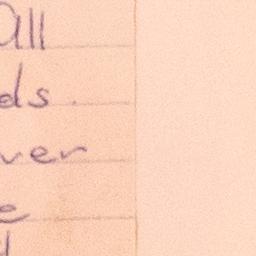 all
ds.
ver
e